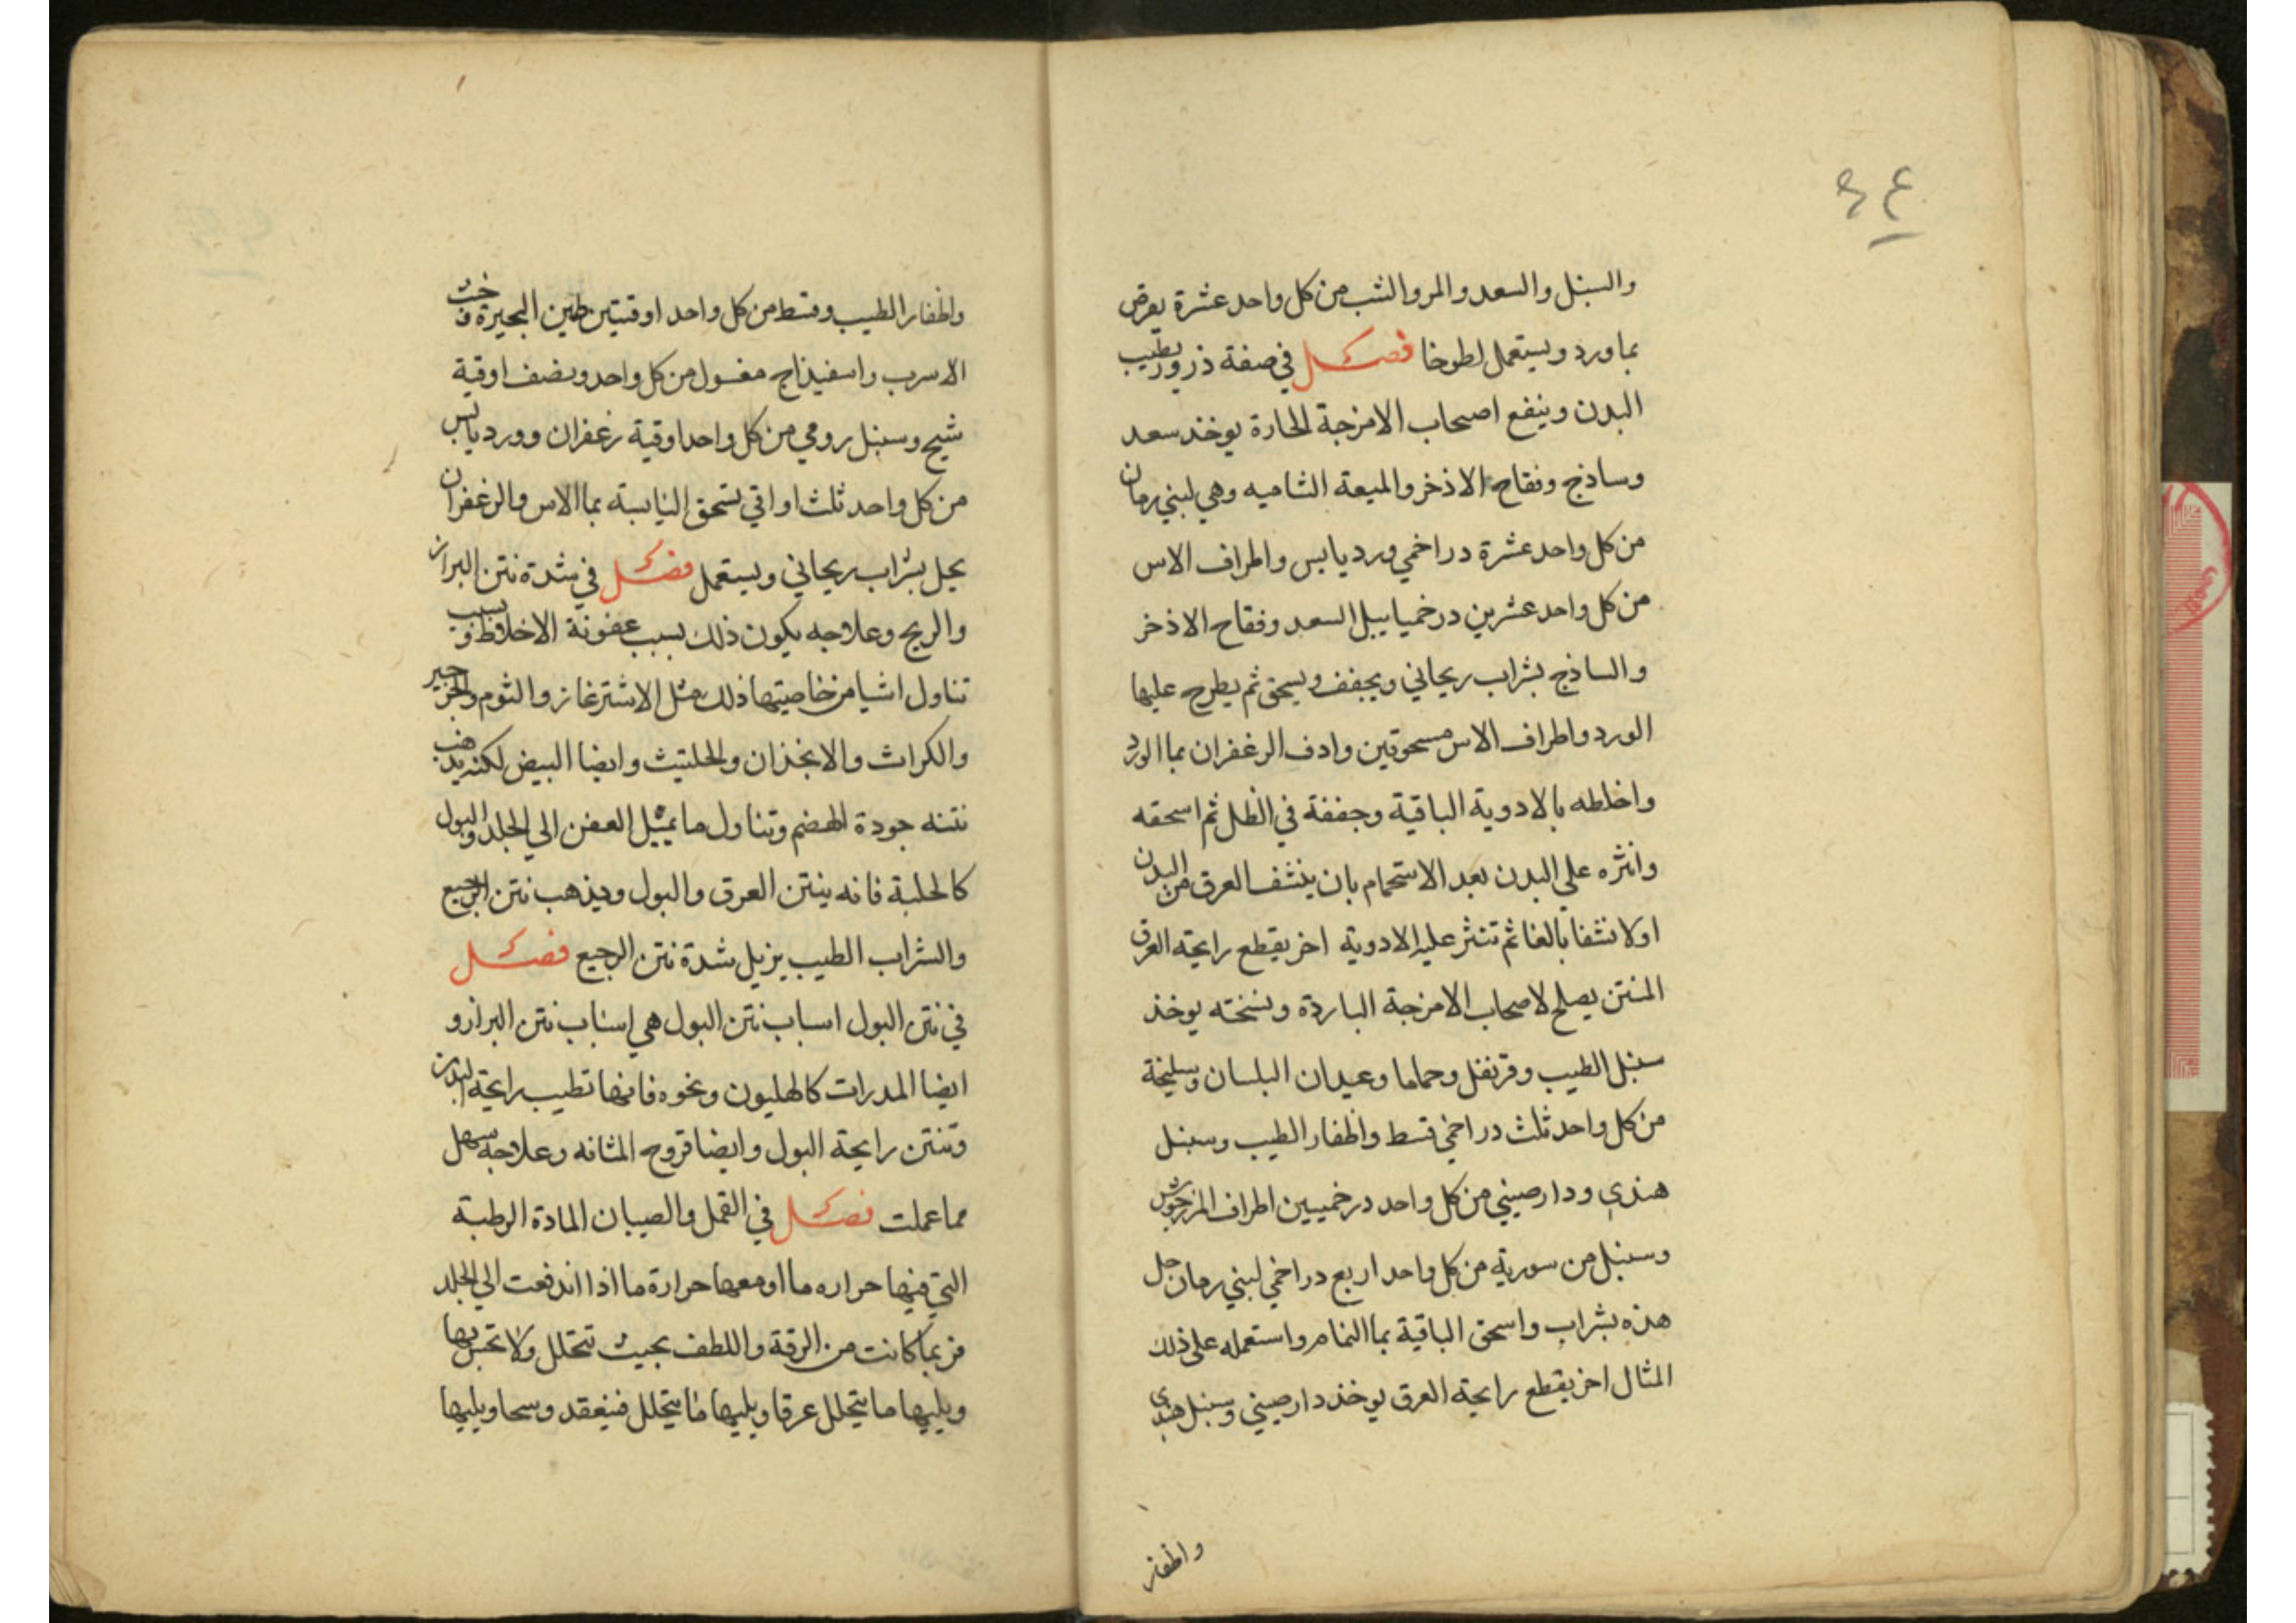 ٤٩
والسنبل والسعد والمر والشب من كل واحد عشرة يقرص
بماورد ويستعمل لطوخا فصل في صفة ذرور يطيب
البدن وينفع اصحاب الامزجة الحارة يوخذ سعد
وساذج وفقاح الاذخر والميعة الشاميه وهي لبني رمان
من كل واحد عشرة دراخمي ورد يابس واطراف الاس
من كل واحد عشرين درخميا يبل السعد وفقاح الاذخر
والساذج بشراب ريحاني ويجفف ويسحق ثم يطرح عليها
الورد واطراف الاس مسحوقين وادف الزعفران بماالورد
واخلطه بالادوية الباقية وجففة في الظل ثم اسحقه
وانثره علي البدن بعد الاستحمام بان ينشف العرق من البدن
اولا نشفا بالغا ثم تنثر عليه الادوية اخر يقطع رايحة العرق
المنتن يصلح لاصحاب الامزجة الباردة ونسخته يوخذ
سنبل الطيب وقرنفل وحماما وعيدان البلسان وسليخة
من كل واحد ثلث دراخمي قسط واظفار الطيب وسنبل
هندي ودارصيني من كل واحد درخميين اطراف المرزجوش
وسنبل من سورية من كل واحد اربع دراخمي لبني رمان حل
هذه بشراب واسحق الباقية بماالنمام واستعمله علي ذلك
المثال اخر يقطع رايحة العرق يوخذ دارصيني وسنبل هندي
واظفار
واظفار الطيب وقسط من كل واحد اوقيتين طين البحيرة وخبث
الاسرب واسفيذاج مغسول من كل واحد ونصف اوقية
شيح وسنبل رومي من كل واحد اوقية زعفران وورد يابس
من كل واحد ثلث اواقي تسحق اليابسة بماالاس والزعفران
يحل بشراب ريحاني ويستعمل فصل في شدة نتن البراز
والريح وعلاجه يكون ذلك بسبب عفونة الاخلاط وبسبب
تناول اشيا من خاصيتها ذلك مثل الاشترغاز والثوم والجرجير
والكراث والانجذان والحلتيث وايضا البيض لكنه يذهب
نتنه جودة الهضم وتناول ما يميل العفن الي الجلد والبول
كالحلبة فانه ينتن العرق والبول ويذهب نتن الرجيع
والشراب الطيب يزيل شدة نتن الرجيع فصل
في نتن البول اسباب نتن البول هي اسباب نتن البراز و
ايضا المدرات كالهليون ونحوه فانها تطيب رايحة البدن
وتنتن رايحة البول وايضا قروح المثانه وعلاجه سهل
مما عملت فصل في القمل والصيبان المادة الرطبة
التي فيها حراره ما او معها حرارة ما اذا اندفعت الي الجلد
فربما كانت من الرقة واللطف بحيث تتحلل ولا تحس بها
ويليها ما يتحلل عرقا ويليها ما يتحلل فينعقد وسخا ويليها